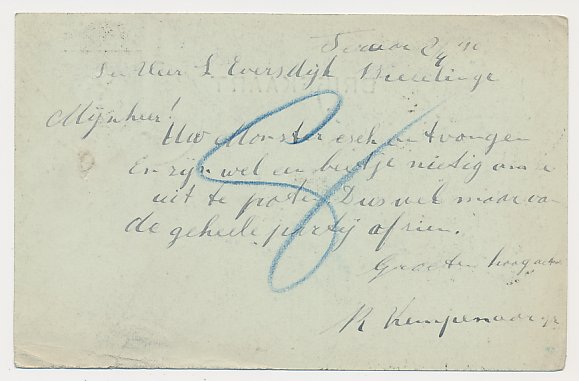 2/4
Den Heer L Eversdijk Biezelinge
Mijnheer!
Uw Monster ontvangen
En zijn wel een beetje nietig om
uit te poten Dus
de geheele partij afzien.
Groeten hoogach
R Kempenaar